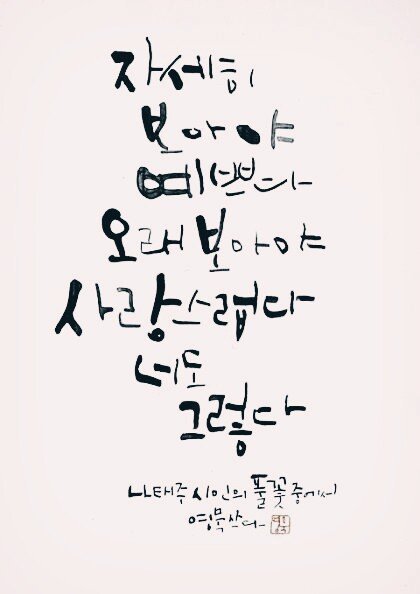 자세히
보아야
예쁘다
오래 보아야
사랑스럽다
너도
그렇다
나태주 시인의 풀꽃 중에서